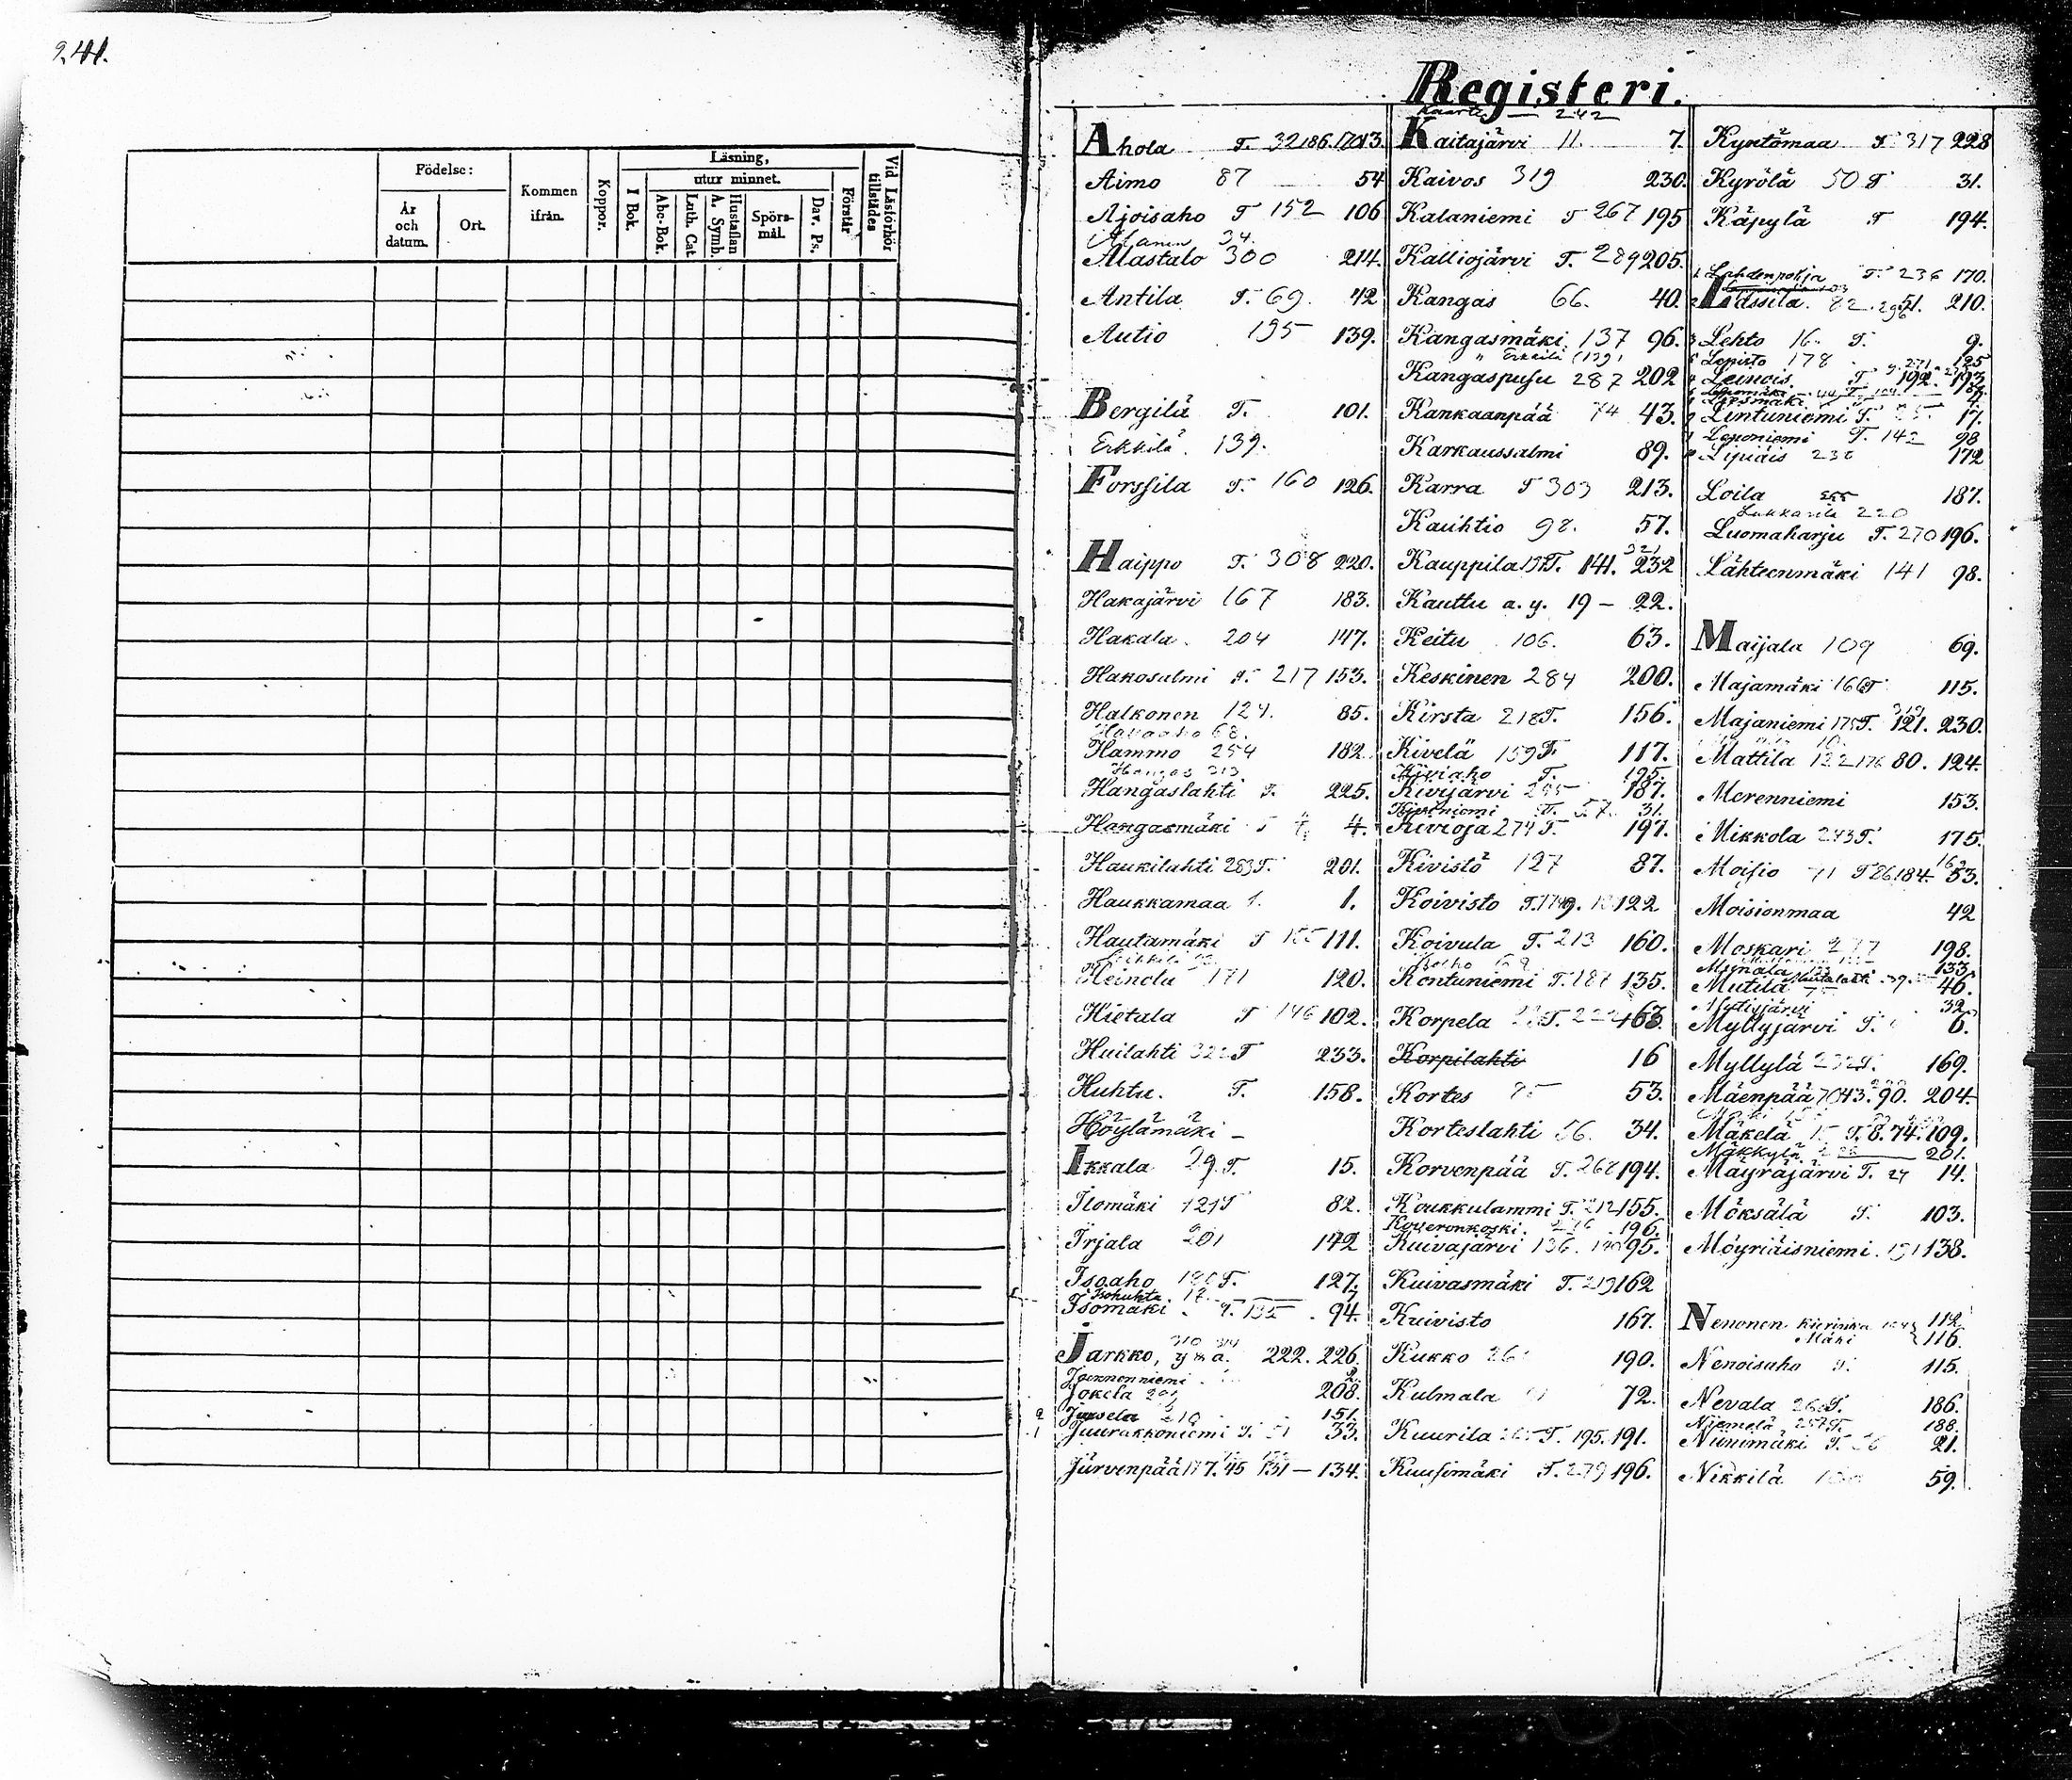 241.
Födelse:
År och datum.
Ort.
Kommen ifrån.
Koppor.
Läsning,
I Bok.
utur minnet.
Abc-Bok.
Luth. Cat
Hustaflan
A. Symb.
Spörsmål.
Dav. Ps.
Förstår
Vid Läsförhör tillstädes
Registeri.
Ahola T. 32
Aimo 87 54
Ajoisaho T 152 106
Alanen 34.
Alastalo 300 214.
Antila T. 69. 42
Autio 195 139.
Bergilä T. 101.
Erkkilä 139.
Forssila T. 160 126.
Haippo T. 308 220.
Hakajärvi 167 183.
Hakala 204 147.
Hakosalmi T. 217 153.
Halkonen 124. 85.
Hakaaho 68.
Hammo 254 182.
Hangas 313
Hangaslahti T. 225.
Hangasmäki 4.
Haukilahti 283 T. 201.
Haukkamaa 1. 1.
Hautamäki T 155 111.
Heinola 171 120.
Hietala T 146 102.
Huilahti 322 T 233.
Huhtu. T. 158.
Höylämäki –
Ikkala 29. T. 15.
Ilomäki 121 T 82.
Irjala 201 142
Isoaho 180 T. 127.
Isohuhta 12.
Isomäki T. 135 94.
Jarkko, y m a. 310 314 222. 226.
Joennenniemi 2.
Jokela 208.
Jussela 210 151.
Juurakkoniemi T. 51 33.
Järvenpää 177. 45 131 – 134.
Kaarte — 242
Kaitajärvi 11. 7.
Kaivos 319 230.
Kalaniemi T 267 195
Kalliojärvi T. 289 205.
Kangas 66. 40.
Kangasmäki 137 96.
" Erkkilä (139)
Kangaspusu 287 202
Kankaanpää 74 43.
Karkaussalmi 89.
Karra T 303 213.
Kauhtio 92. 57.
Kauppila 197 T. 141. 321 232
Kauttu a. y. 19 – 22.
Keitu 106. 63.
Keskinen 284 200.
Kirsta 218 T. 156.
Kivelä 159 T. 117.
Kiviaho T. 195.
Kivijärvi 255 187.
Kiviniemi T. 57. 31.
Kivioja 274 T. 197.
Kivistö 127 87.
Koivisto T. 122
Koivula T. 213 160.
Kontuniemi T. 187 135.
Korpela T. 163.
Korpilahti 16
Kortes 85 53.
Korteslahti 56. 34.
Korvenpää T. 268 194.
Koukkulammi T. 212 155.
Koveronkoski 196.
Kuivajärvi 136. 95.
Kuivasmäki T. 219 162
Kuivisto 167.
Kukko 26 190.
Kulmala 72.
Kuurila T. 195. 191.
Kuusimäki T. 279 196.
Kyntömaa T. 317 228
Kyrölä 50 T 31.
Käpylä T 194.
Lahdenpohja T. 236 170.
Lassila. 82. 296 51. 210.
Lehto 16. T. 9.
Lepisto 178 125
Leinois. T 192. 193
Lintuniemi T. 25 17.
Leponiemi T. 142 98
Lipiäis 238 172
Loila 255 187.
Lukkarila 220
Luomaharju T. 270 196.
Lähteenmäki 141 98.
Maijala 109 69.
Majamäki 166 T 115.
Majaniemi 175 T. 319 121. 230.
Mattila 122 176 80. 124.
Merenniemi 153.
Mikkola 243 T. 175.
Moisio 71 T 86 184. 53.
Moisionmaa 42
Moskari 277 198.
Mutalahti
Mutila 46.
32.
Myllyjärvi T. 6.
Myllylä 232 T. 169.
Mäenpää 70 43. 90. 204.
Mäkelä T. 8. 74. 109.
Mäkkylä 201.
Mäyräjärvi T. 24 14.
Möksälä T. 103.
Möyriäisniemi. 191 138.
Nenonen 112.
Mäki 116.
Nenoisaho T. 115.
Nevala 260 T. 186.
Niemelä 257 T. 188.
Niinimäki T. 36 21.
Nikkilä 59.